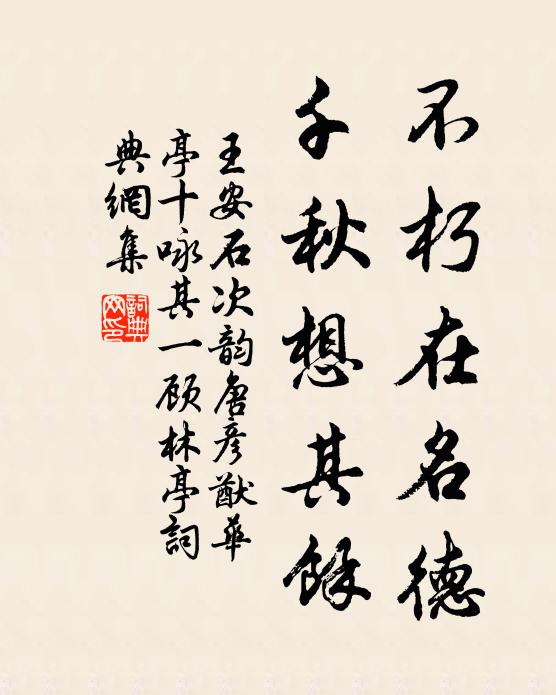 不朽在名德
千秋想其餘
王安石次韵唐彦猷華
亭十咏其一顾林亭詞
典網集
詞典网印